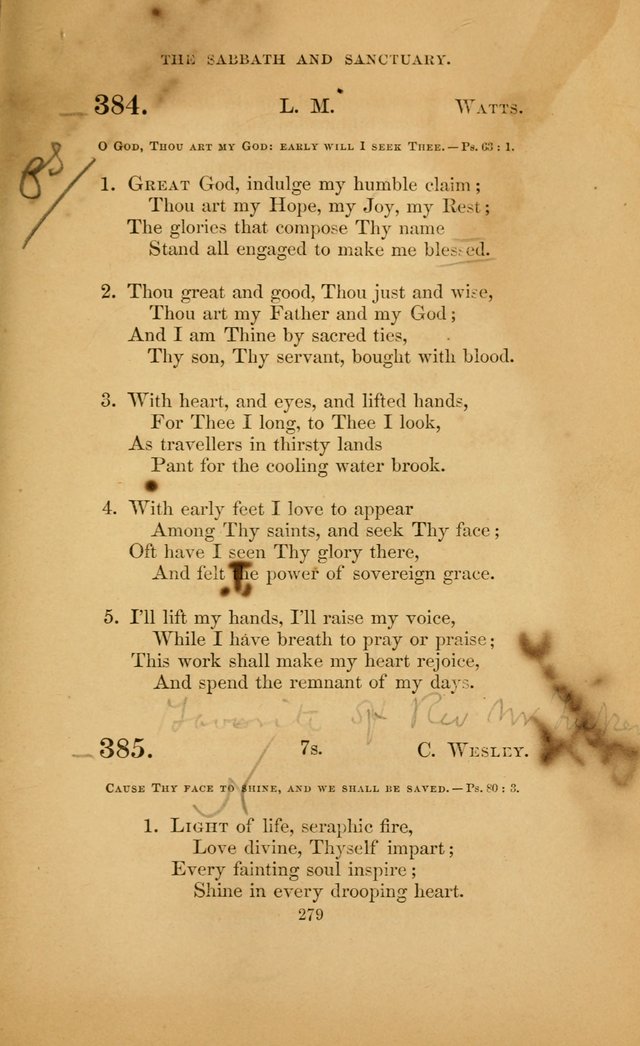 THE SABBATH AND SANCTUARY.
384. L. M. WATTS.
O GOD, THOU ART MY GOD: EARLY WILL I SEEK THEE.—Ps. 63 : 1.
1. GREAT God, indulge my humble claim;
Thou art my Hope, my Joy, my Rest;
The glories that compose Thy name
Stand all engaged to make me blessed.
2. Thou great and good, Thou just and wise,
Thou art my Father and my God;
And I am Thine by sacred ties,
Thy son, Thy servant, bought with blood.
3. With heart, and eyes, and lifted hands,
For Thee I long, to Thee I look,
As travellers in thirsty lands
Pant for the cooling water brook.
4. With early feet I love to appear
Among Thy saints, and seek Thy face;
Oft have I seen Thy glory there,
And felt the power of sovereign grace.
5. I'll lift my hands, I'll raise my voice,
While I have breath to pray or praise;
This work shall make my heart rejoice,
And spend the remnant of my days.
Favorite of Rev Mr
385. 7s. C. WESLEY.
CAUSE THY FACE TO SHINE, AND WE SHALL BE SAVED.—Ps. 80 : 3.
1. LIGHT of life, seraphic fire,
Love divine, Thyself impart;
Every fainting soul inspire;
Shine in every drooping heart.
279